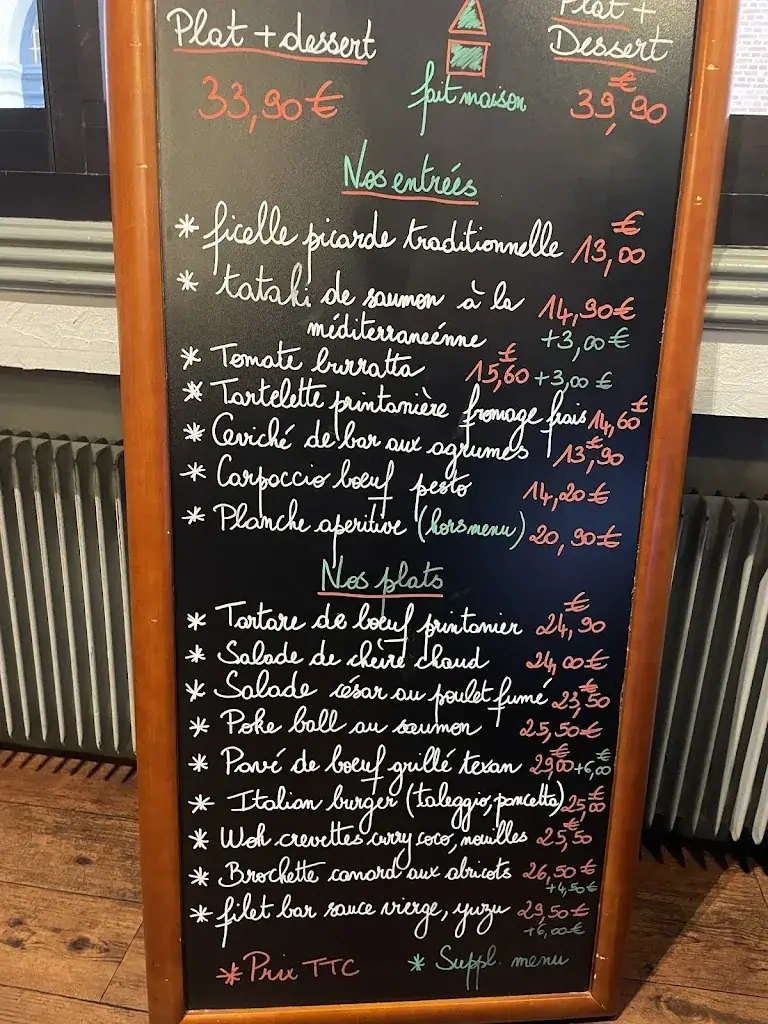 Plat +
Plat + dessert
Dessert
33,90 €
fait maison
39,90 €
Nos entrées
* ficelle picarde traditionnelle 13,00 €
* tataki de saumon à la 14,90 €
méditerraneénne +3,00 €
* Tomate burratta 15,60 € +3,00 €
* Tartelette printanière fromage frais 14,60 €
* Ceviché de bar aux agrumes 13,90 €
* Carpaccio bœuf pesto 14,20 €
* Planche aperitive (hors menu) 20,90 €
Nos plats
* Tartare de bœuf printanier 24,90 €
* Salade de chèvre chaud 24,00 €
* Salade césar au poulet fumé 23,50 €
* Poke ball au saumon 25,50 €
* Pavé de bœuf grillé texan 29,00 € +6,00 €
* Italian burger (taleggio, pancetta) 25,00 €
* Wok crevettes curry coco, nouilles 25,50 €
* Brochette canard aux abricots 26,50 €
+4,50 €
* filet bar sauce vierge, yuzu 29,50 €
+6,00 €
* Prix TTC * Suppl. menu